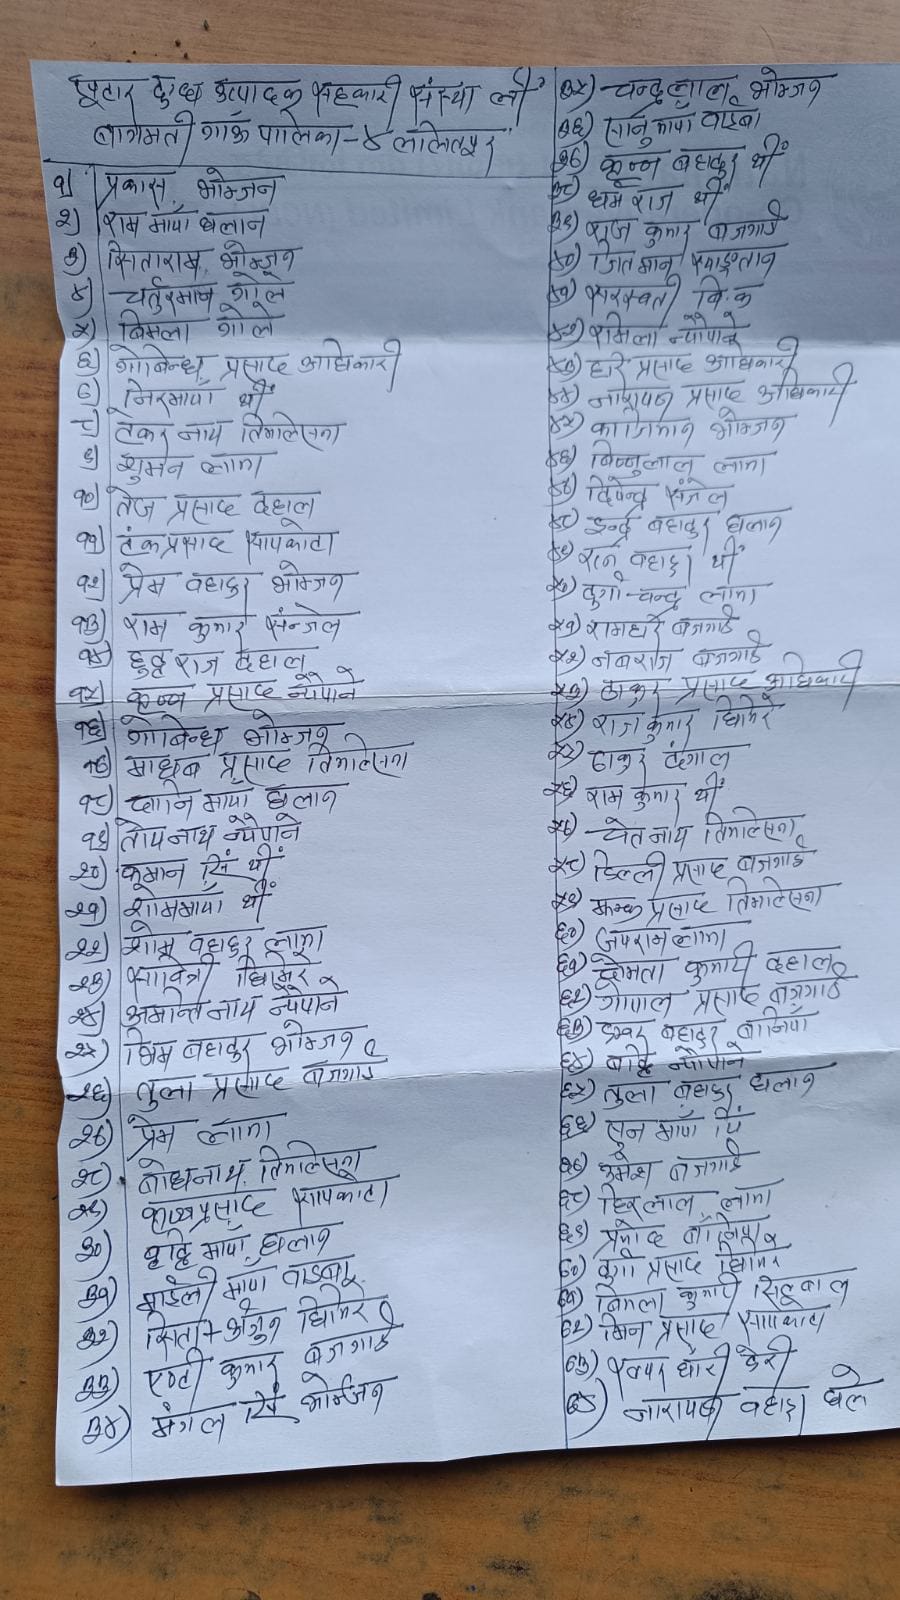 दुग्ध उत्पादक सहकारी संस्था ली
बागमती गाँउ पालिका-४ ललितपुर
१) प्रकास भोम्जन
२) राम माँया घलान
३) सिताराम भोम्जन
४) चर्तुरमान गोले
५) बिमला गोले
६) गोबिन्ध प्रसाद अधिकारी
७) थीं
८) टंकर नाथ तिमल्सिना
९) शुमन लामा
१०) तेज प्रसाद दहाल
११) टंकप्रसाद सापकोटा
१२) प्रेम बहादुर भोम्जन
१३) राम कुमार संन्जेल
१४) राज दहाल
१५) कृष्ण प्रसाद न्यौपाने
१६) गोबिन्ध भोम्जन
१७) माधब प्रसाद तिमल्सिना
१८) माया घलान
१९) तोयनाथ न्यौपाने
२०) कुमान सिं थीं
२१) शोममाँया थीं
२२) शोम बहादुर लामा
२३) सावित्री घिमिरे
२४) नाथ न्यौपाने
२५) भिम बहादुर भोम्जन
२६) तुला प्रसाद बजगाई
२७) प्रेम लामा
२८) बोधनाथ तिमल्सिना
२९) कृष्णप्रसाद सापकोटा
३०) बुद्धि माँया घलान
३१) माइली माया वाइबा
३२) सिता + अर्जुन घिमिरे
३३) कुमार बजगाई
३४) मंगल सिं भोम्जन
३५) चन्द्रलाल भोम्जन
३६) सानु माया वाइबा
३७) कृष्ण बहादुर थीं
३८) धर्म राज थीं
३९) राज कुमार बजगाई
४०) जितमान स्याङ्तान
४१) सरस्वती बि.क
४२) रमिला न्यौपाने
४३) हरि प्रसाद अधिकारी
४४) नारायण प्रसाद अधिकारी
४५) काजिमान भोम्जन
४६) बिष्णुलाल लामा
४७) दिपेन्द्र संजेल
४८) इन्द्र बहादुर घलान
४९) रत्न बहादुर थीं
५०) दुर्गा चन्द्र लामा
५१) रामहरि बजगाई
५२) नबराज बजगाई
५३) ठाकुर प्रसाद अधिकारी
५४) राज कुमार घिमिरे
५५) ठाकुर दंगाल
५६) राम कुमार थीं
५७) चेतनाथ तिमल्सिना
५८) डिल्ली प्रसाद बजगाई
५९) प्रसाद तिमल्सिना
६०) जयराम लामा
६१) कुमारी दहाल
६२) गोपाल प्रसाद बजगाई
६३) इश्वर बहादुर बानियाँ
६४) बद्रि न्यौपाने
६५) तुला बहादुर घलान
६६) सुन माँया
६७) उमेश बजगाई
६८) हिरालाल लामा
६९) प्रमोद बानियाँ
७०) दुर्गा प्रसाद घिमिरे
७१) बिमला कुमारी सिटौला
७२) प्रसाद सापकोटा
७३) डेरी
७४) नारायण बहादुर घले